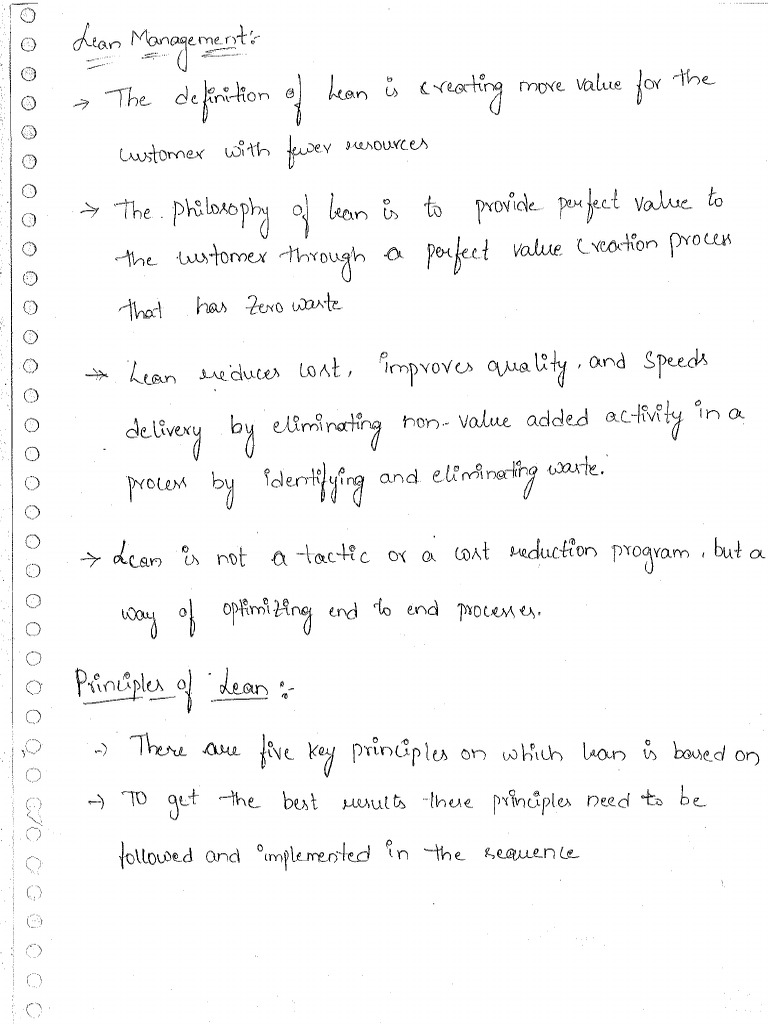 Lean Management:-
→ The definition of Lean is creating more value for the
customer with fewer resources
→ The philosophy of Lean is to provide perfect value to
the customer through a perfect value creation process
that has Zero waste
→ Lean reduces cost, improves quality, and speeds
delivery by eliminating non-value added activity in a
process by identifying and eliminating waste.
→ Lean is not a tactic or a cost reduction program, but a
way of optimizing end to end processes.
Principles of Lean :-
→ There are five key principles on which lean is based on
→ To get the best results these principles need to be
followed and implemented in the sequence